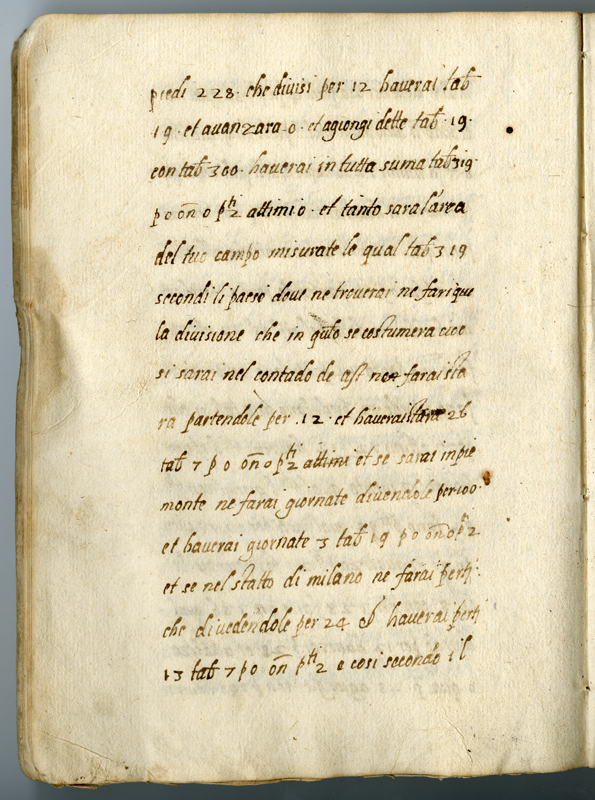 piedi 228 · che divisi per 12 haverai tab
19 · et avanzara 0 · et agiongi dette tab · 19 ·
con tab 300 · haverai in tutta suma tab 319 ·
p 0 on 0 pti 2 attimi 0 · et tanto sara larea
del tuo campo misurate le qual tab 319
secondi li paesi dove ne troverai ne fari que
la divisione che in qsto se costumera cioe
si sarai nel contado de ast ne farai sta
ra partendole per · 12 · et haverai stare 26
tab 7 p 0 on 0 pti 2 attimi et se sarai in pie
monte ne farai giornate divendole per 100 ·
et haverai giornate 3 tab 19 p 0 on 0 pti 2
et se nel statto di milano ne farai perti :
che divedendole per 24 haverai perti
13 tab 7 p 0 on pti 2 e cosi secondo il